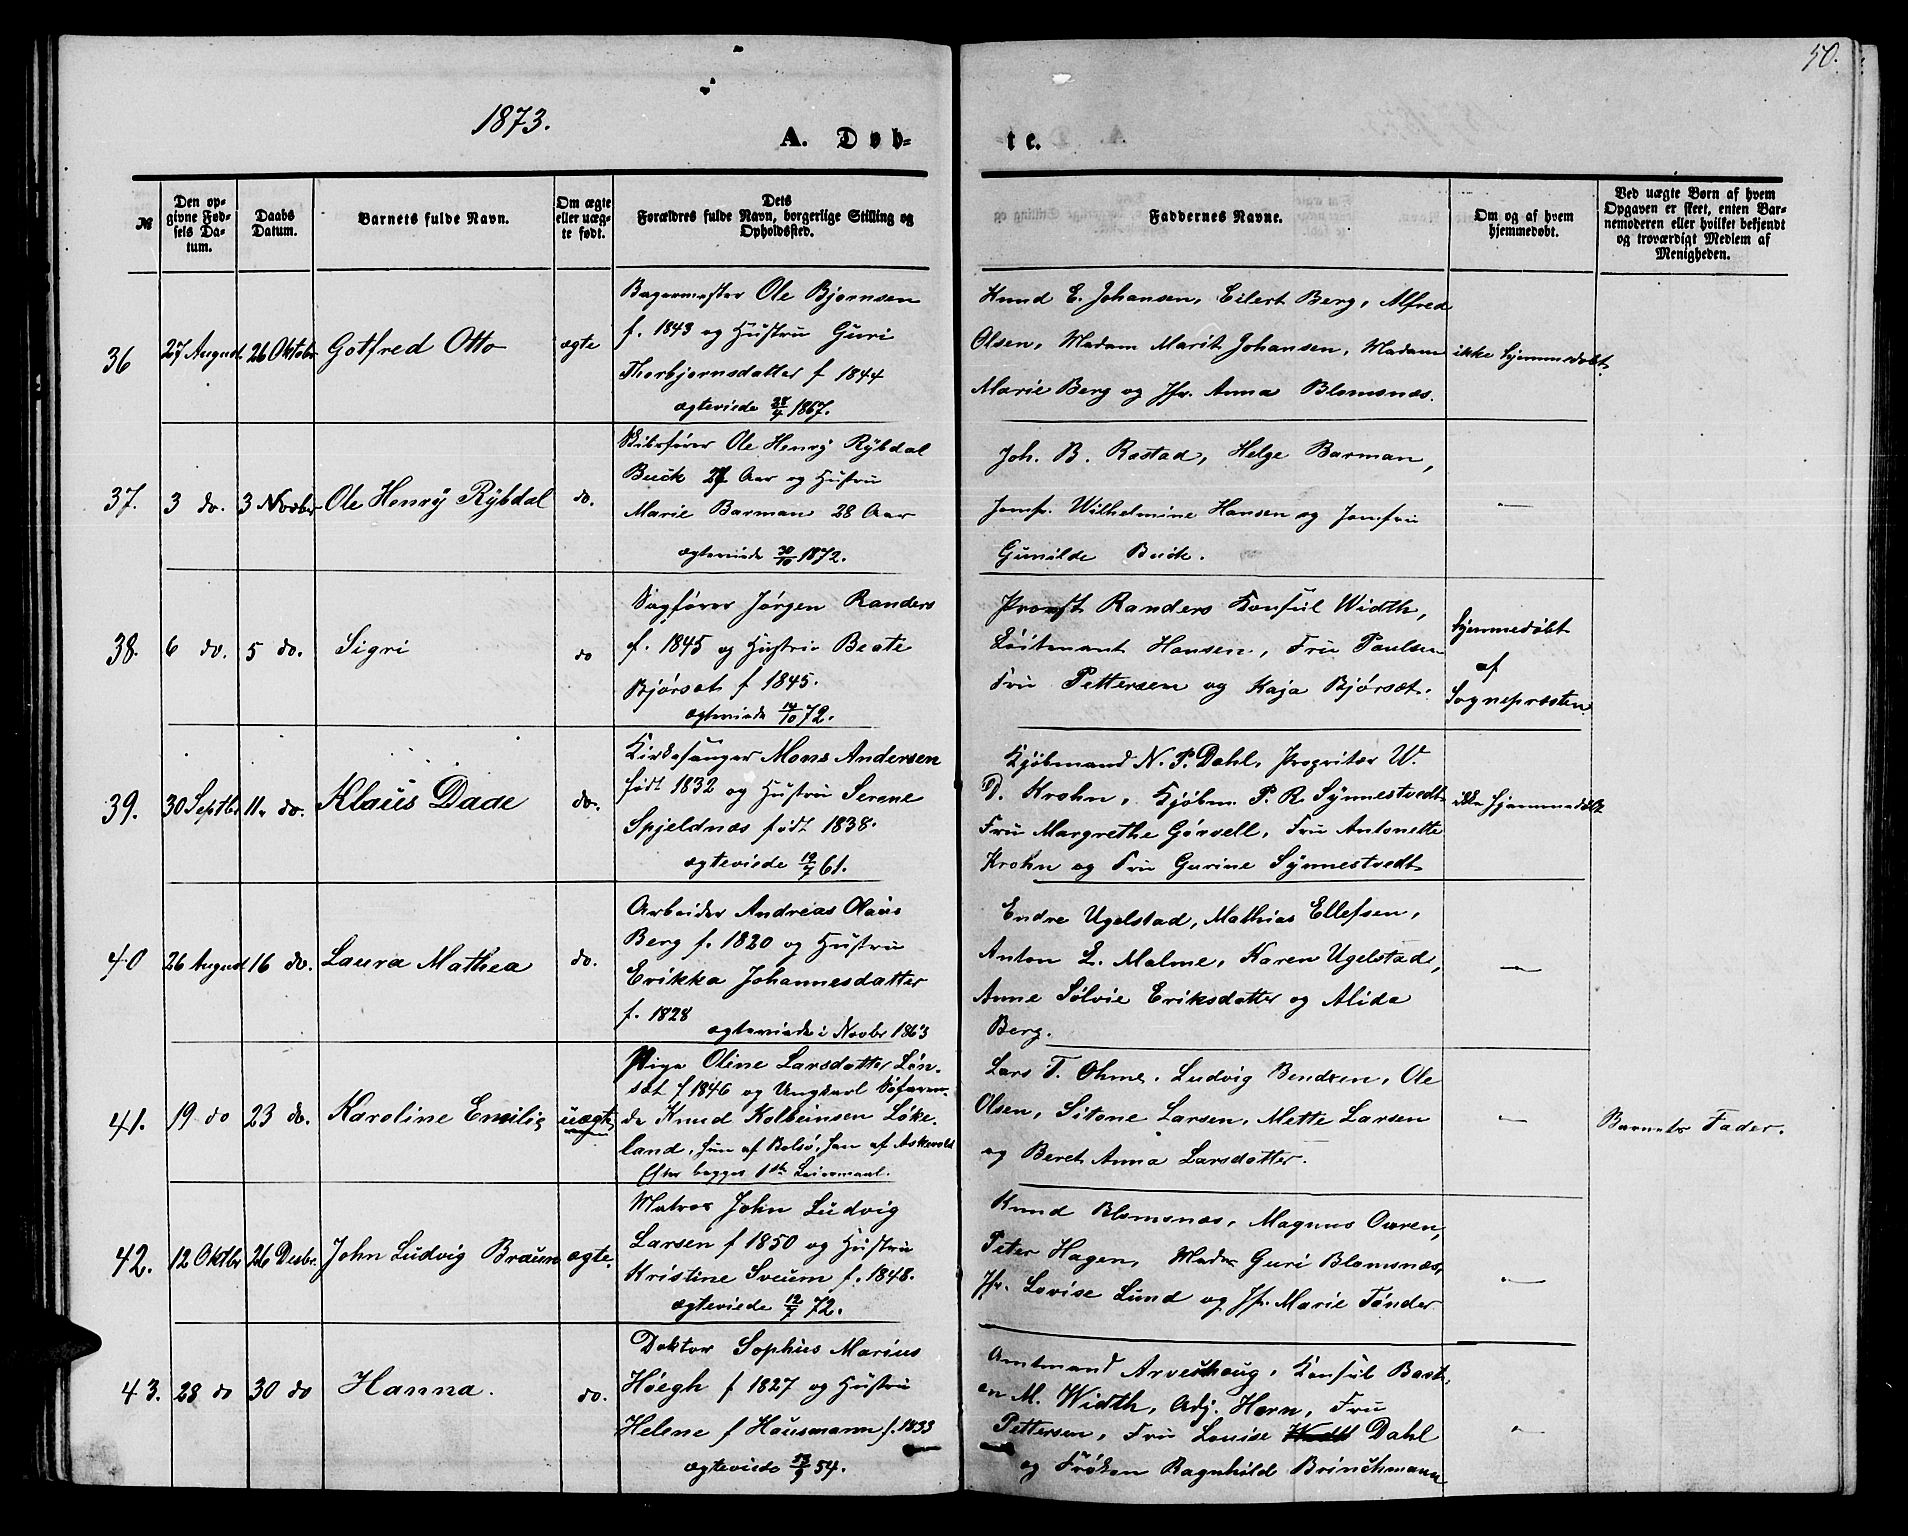 50.
1873.
A. Døb-
te.
№
Den op-
givne Fød-
sels Da-
tum.
Daabs
Datum.
Barnets fulde Navn.
Om ægte
eller uæg-
te født.
Dets
Forældres fulde Navn, borgerlige Stilling og
Opholdssted.
Faddernes Navne.
Om og af hvem
hjemmedøbt.
Ved uægte Børn af hvem
Opgaven er skeet, enten Bar-
nemoderen eller hvilket bekjendt
og troværdigt Medlem af
Menigheden.
36
27 August
26 Oktobr
Gotfred Otto
ægte
Bagermester Ole Bjørnsen
f. 1843 og Hustru Guri
Thorbjørnsdatter f 1844
ægteviede 28/4 1867.
Knud E. Johansen, Eilert Berg, Alfred
Olsen, Madam Marit Johansen, Madam
Marie Berg og Jfr. Anna Blomsnæs.
ikke hjemmedøbt.
37.
3 do.
3 Novbr
Ole Henry Rÿbdal
do.
Skibsfører Ole Henrÿ Rÿbdal
Buck 27 Aar og Hustru
Marie Barman 28 Aar
ægteviede 30/10 1872.
Joh. B. Rostad, Helge Barman,
Jomfr. Wilhelmine Hansen og Jomfru
Gunilde Buck.
—
38.
6 do.
5 do.
Sigri
do
Sagfører Jørgen Randers
f. 1845 og Hustru Beate
Bjørset f 1845.
ægteviede 14/10 72.
Provst Randers Konsul Width,
Løitnant Hansen, Fru Paulsen
Fru Pettersen og Kaja Bjørset.
hjemmedøbt
af
Sognepræsten.
39.
30 Septbr
11. do.
Klaus Dade
do.
Kirkesanger Mons Andersen
født 1832 og Hustru Serene
Spjeldnæs født 1838.
ægteviede 12/7 61.
Kjøbmand N. P. Dahl, Propritær W.
D. Krohn, Kjøbm. P. R. Sÿnnestvedt
Fru Margrethe Gørvell, Fru Antonette
Krohn og Fru Gurine Sÿnnestvedt
ikke hjemmedøbt
40
26 August
16 do.
Laura Mathea
do.
Arbeider Andreas Olaus
Berg f. 1820 og Hustru
Erikka Johannesdatter
f. 1828
ægteviede i Novbr 1863
Endre Ugelstad, Mathias Ellefsen,
Anton L. Malme, Karen Ugelstad,
Anne Sølvie Eriksdatter og Alida
Berg.
—
41.
19 do
23 do.
Karoline Emilie
uægte
Pige Oline Larsdatter Løn-
set f 1846 og Ungkarl Søfaren-
de Knud Kolbeinsen Løke-
land, hun af Bolsø, han af Askevold
Efter begges 1ste Leiermaal.
Lars T. Ohme, Ludvig Bendsen, Ole
Olsen, Sitone Larsen, Mette Larsen
og Beret Anna Larsdatter.
—
Barnets Fader.
42.
12 Oktbr
26 Desbr.
John Ludvig Braun
ægte.
Matros John Ludvig
Larsen f 1850 og Hustru
Kristine Sveum f. 1848.
ægteviede 12/7 72.
Knud Blomsnæs, Magnus Owren,
Peter Hagen, Madm Guri Blomsnæs,
Jfr. Lovise Lund og Jfr. Marie Tønder
—
43.
28 do
30 do
Hanna.
do.
Doktor Sophus Marius
Høegh f 1827 og Hustru
Helene f Hausmann f. 1833
ægteviede 13/9 54.
Amtmand Arveschoug, Konsul Bast-
en M. Width, Adj. Horn, Fru
Pettersen, Fru Louise Dahl
og Frøken Ragnhild Brinchmann
—